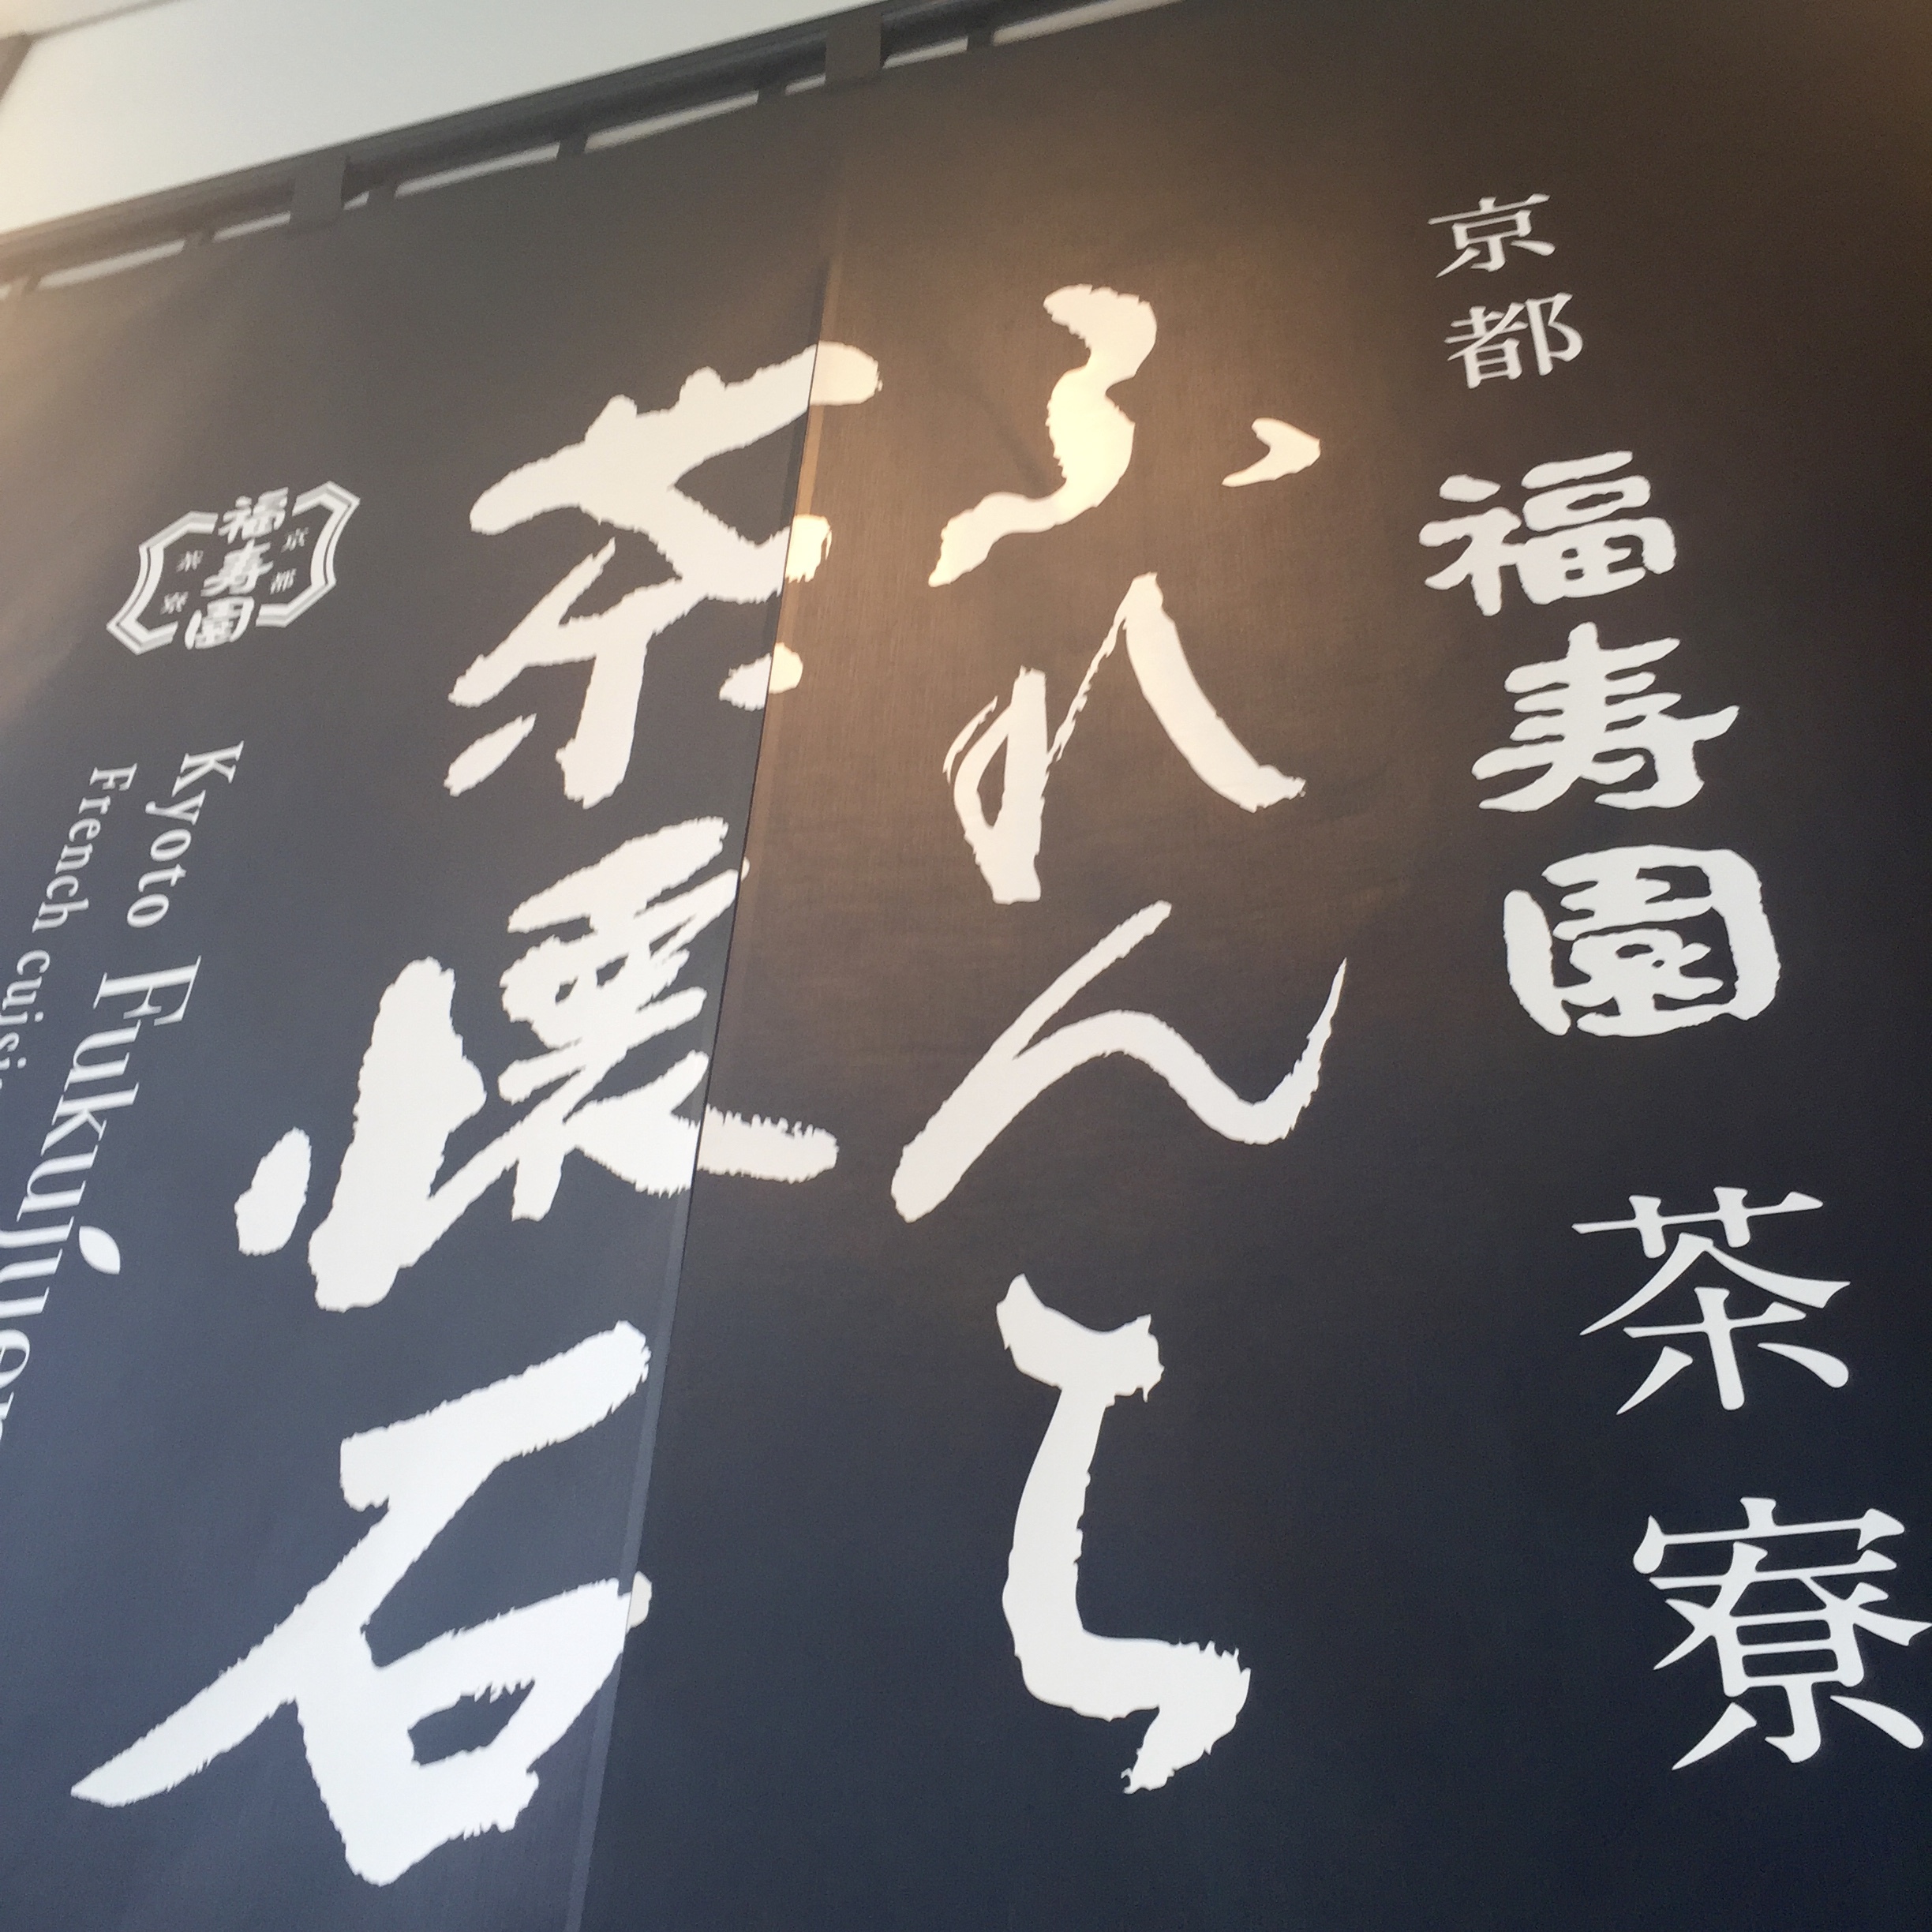 京都 福寿園 茶寮
ふれんち
茶懐石
福寿園
京都
茶寮
Kyoto Fukujuen
French cuisi